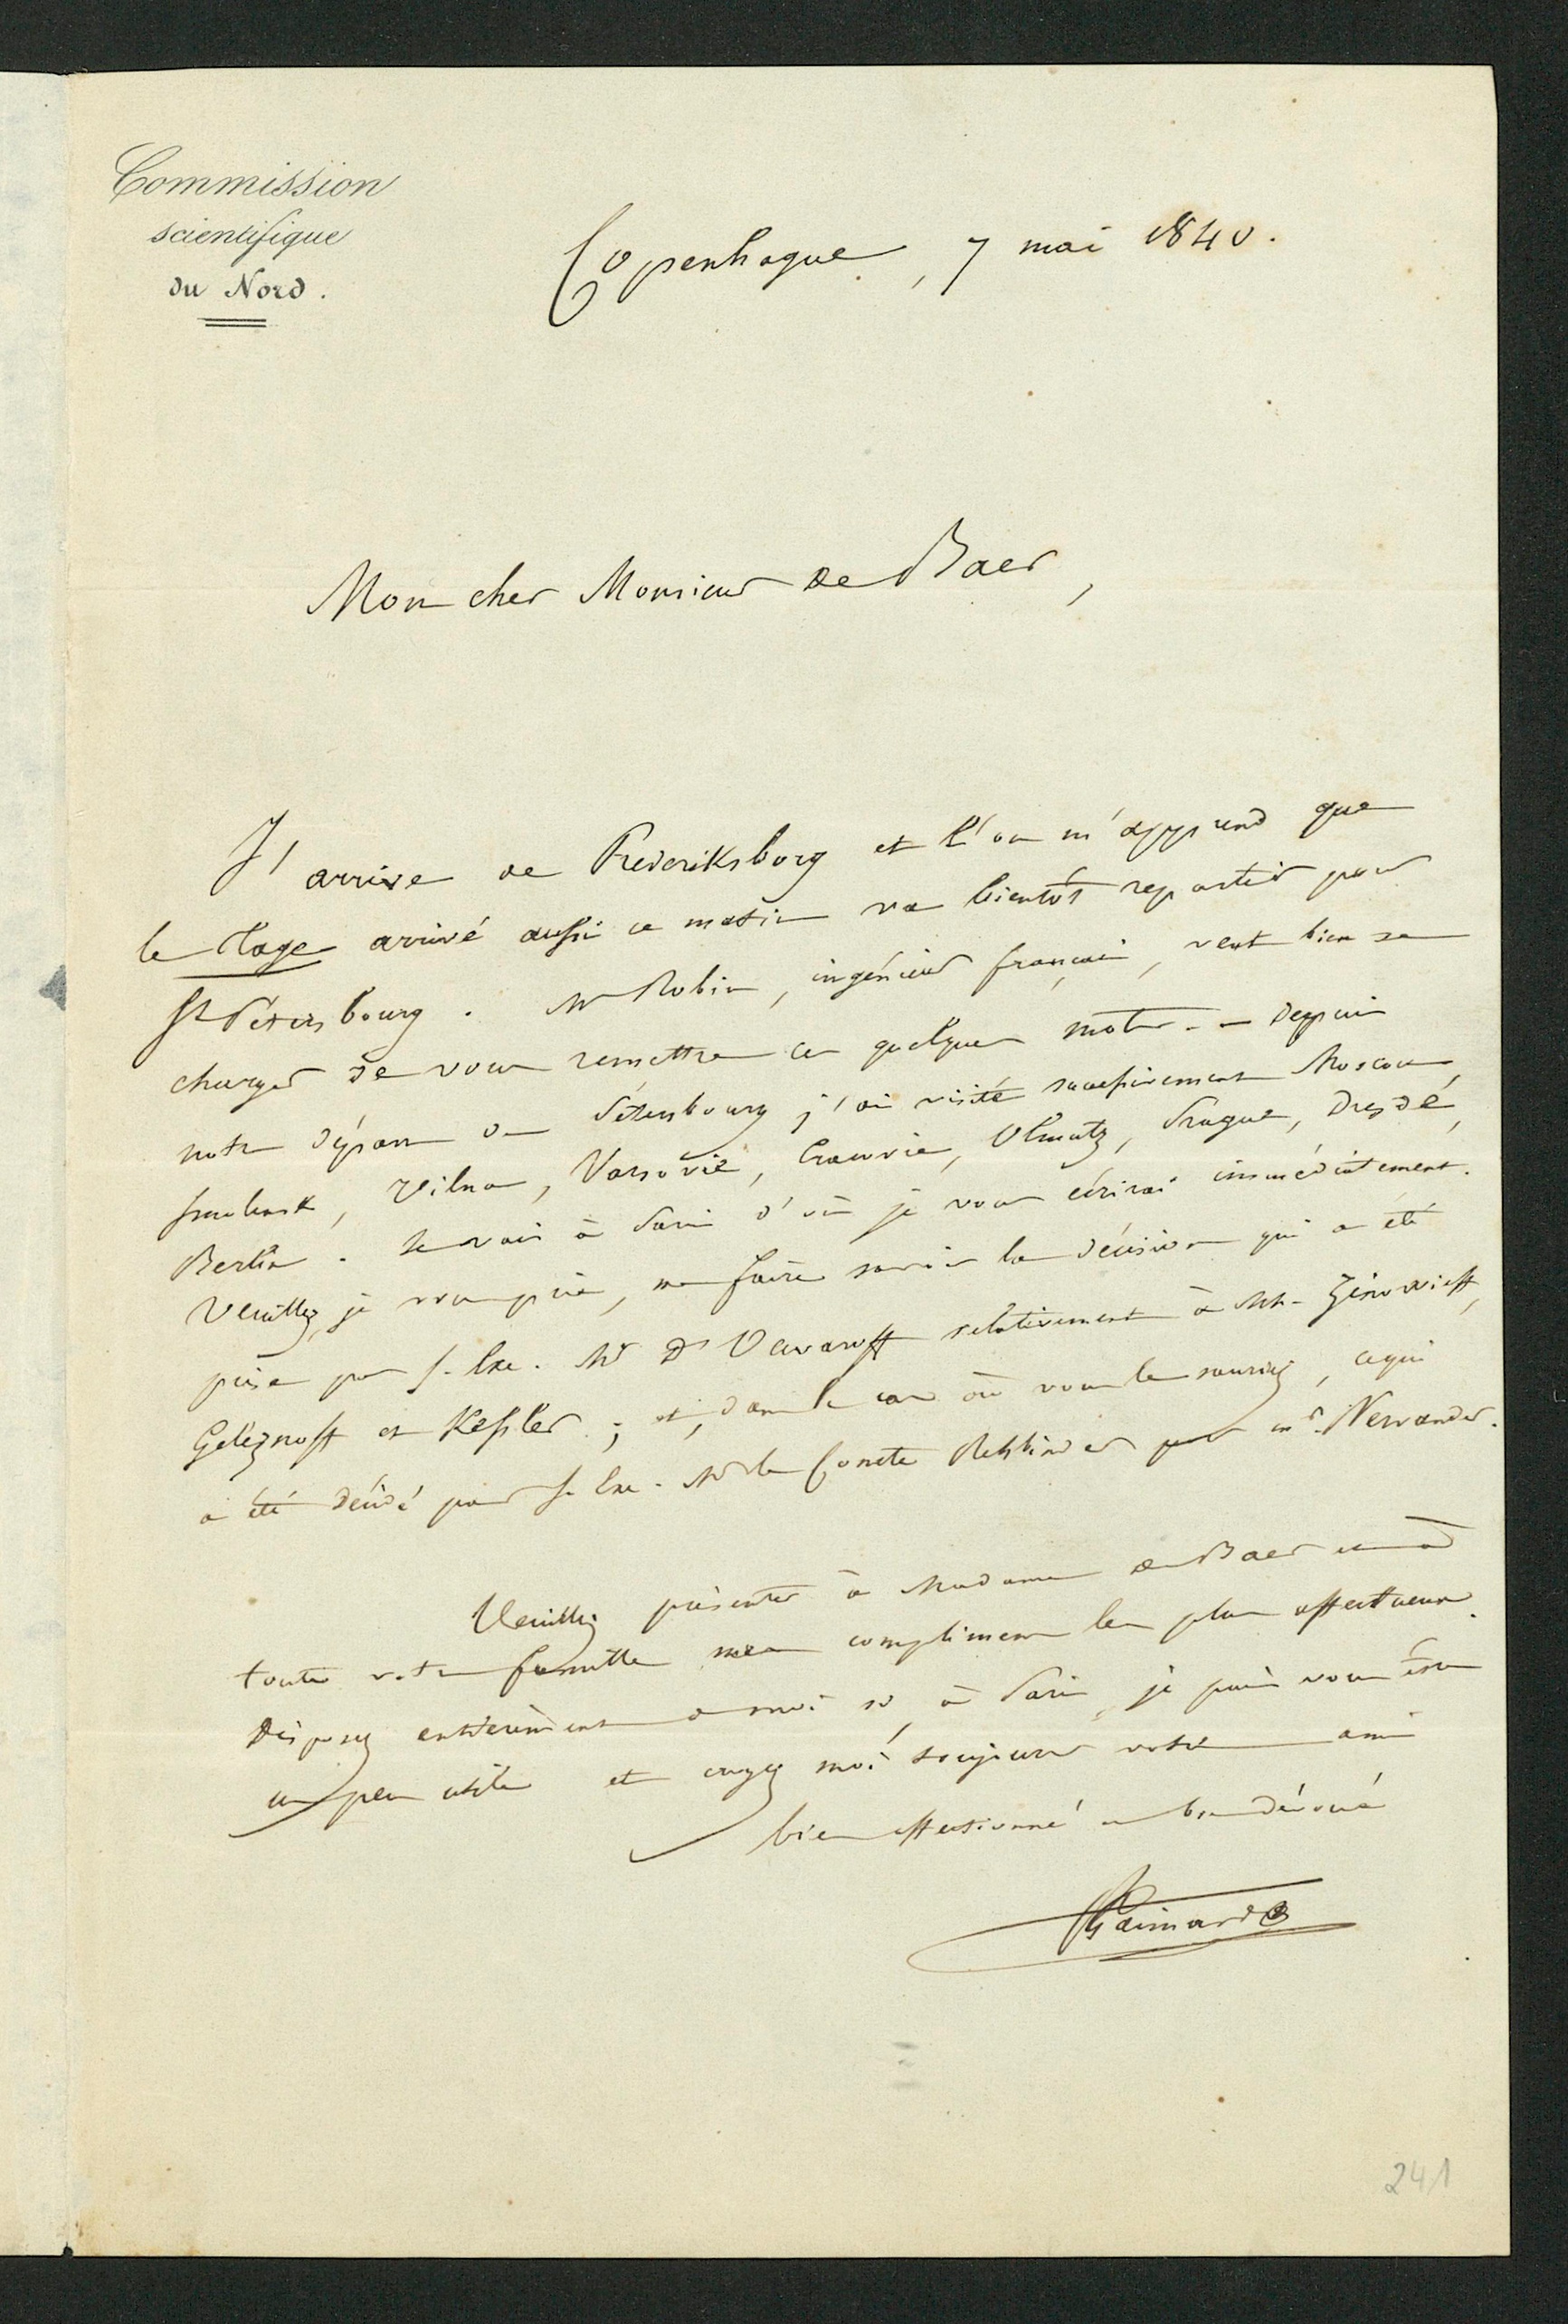 Commission
scientifique
du Nord.
Copenhague, 7 mai 1840.
Mon cher Monsieur de Baer,
J'arrive de Frederiksborg et l'on m'apprend que
le Tage arrivé aussi ce matin va bientôt repartir pour
St Pétersbourg. Mr Robin, ingénieur français, veut bien se
charger de vous remettre ces quelques mots. - Depuis
notre départ de Pétersbourg j'ai visité successivement Moscou,
Smolensk, Vilna, Varsovie, Cracovie, Olmutz, Prague, Dresde,
Berlin. Je vais à Paris d'où je vous écrirai immédiatement.
Veuillez, je vous prie, me faire savoir la décision qui a été
prise par S. Exc. Mr D' Ouvaroff relativement à MM. Zinovieff,
Geleznoff et Kessler; et, dans le cas où vous le sauriez, ce qui
a été décidé par S. Exc. Mr le Comte Rehbinder pour mr. Nervander.
Veuillez présenter à Madame de Baer et à
toute votre famille mes complimens les plus affectueux.
Disposez entièrement de moi si, à Paris, je puis vous être
un peu utile et croyez moi toujours votre ami
bien affectionné et bien dévoué
P. Gaimard
241